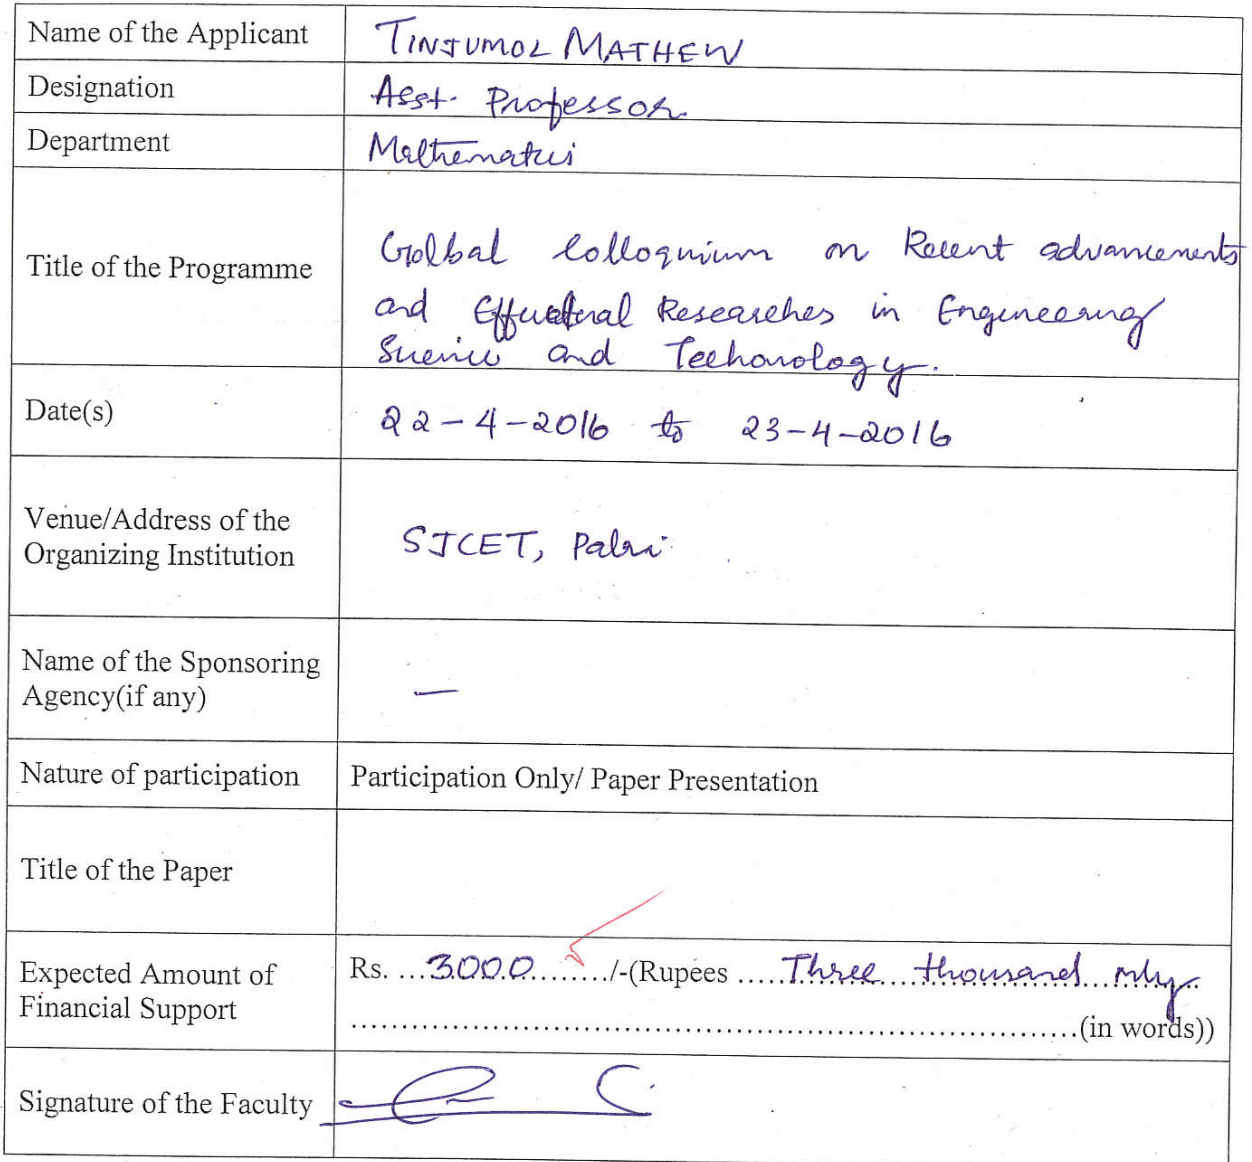 Name of the Applicant TINJUMOL MATHEW
Designation Asst. Professor
Department Mathematics
Title of the Programme
Golbal Colloquium on Recent advancements
and Effectual Researches in Engineering
Science and Techonology.
Date(s) 22-4-2016 to 23-4-2016
Venue/Address of the
Organizing Institution
SJCET, Palai
Name of the Sponsoring
Agency(if any)
—
Nature of participation Participation Only/ Paper Presentation
Title of the Paper
Expected Amount of
Financial Support
Rs. ...3000......../-(Rupees .....Three thousand only..
........................................................................(in words))
Signature of the Faculty